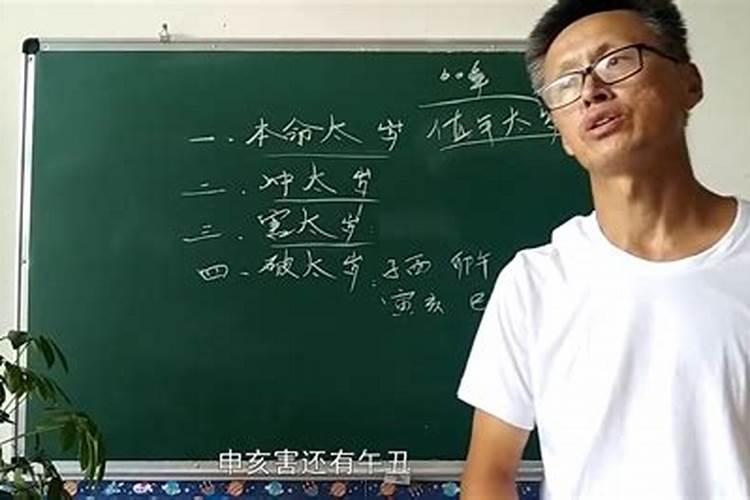 60年
一.本命太岁 值年太岁
二.冲太岁
三.害太岁
四.破太岁:子酉 卯午
寅亥 巳
申亥害还有午丑